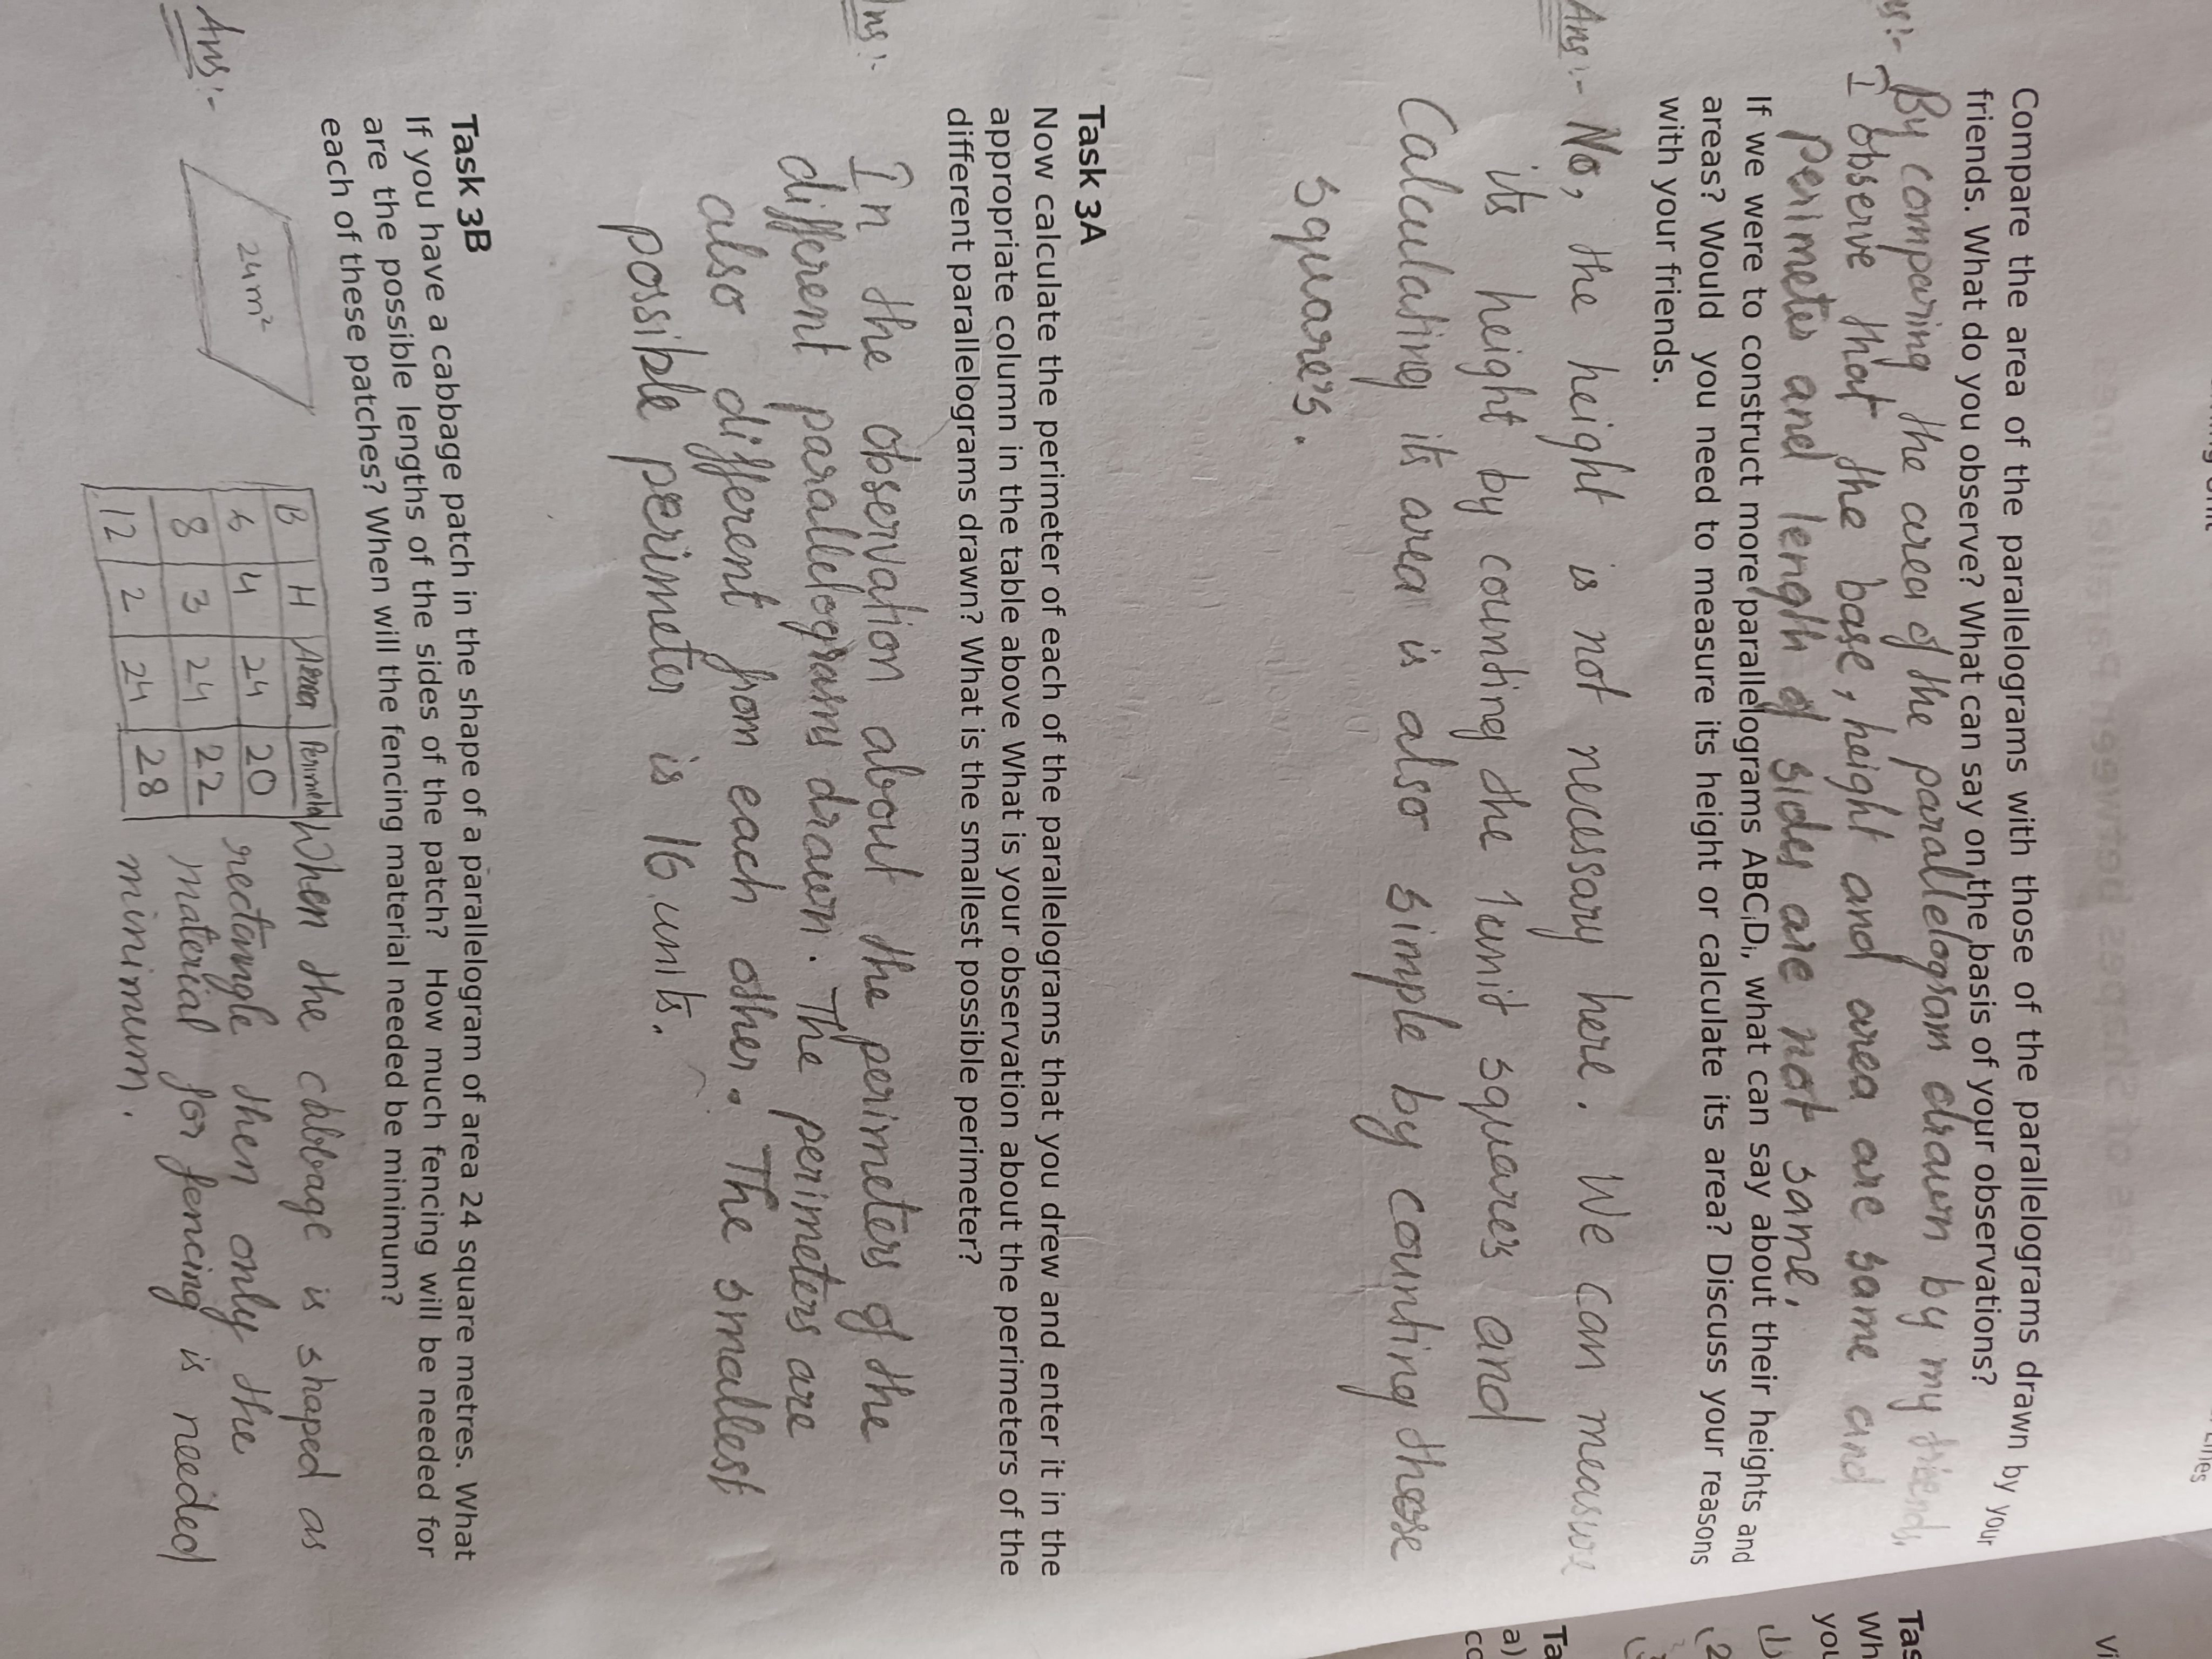 Compare the area of the parallelograms with those of the parallelograms drawn by your
friends. What do you observe? What can say on the basis of your observations?
By comparing the area of the parallelogram drawn by my friends,
I observe that the base, height and area are same and
perimeter and length of sides are not same.
If we were to construct more parallelograms ABC₁D₁, what can say about their heights and
areas? Would you need to measure its height or calculate its area? Discuss your reasons
with your friends.
Ans:- No, the height is not necessary here. We can measure
its height by counting the 1 unit squares and
Calculating its area is also simple by counting those
squares.
Task 3A
Now calculate the perimeter of each of the parallelograms that you drew and enter it in the
appropriate column in the table above What is your observation about the perimeters of the
different parallelograms drawn? What is the smallest possible perimeter?
Ans:- In the observation about the perimeters of the
different parallelograms drawn. The perimeters are
also different from each other. The smallest
possible perimeter is 16 units.
Task 3B
If you have a cabbage patch in the shape of a parallelogram of area 24 square metres. What
are the possible lengths of the sides of the patch? How much fencing will be needed for
each of these patches? When will the fencing material needed be minimum?
Ans:-
24m²
B H Area Perimeter
6 4 24 20
8 3 24 22
12 2 24 28
When the cabbage is shaped as
rectangle then only the
material for fencing is needed
minimum.